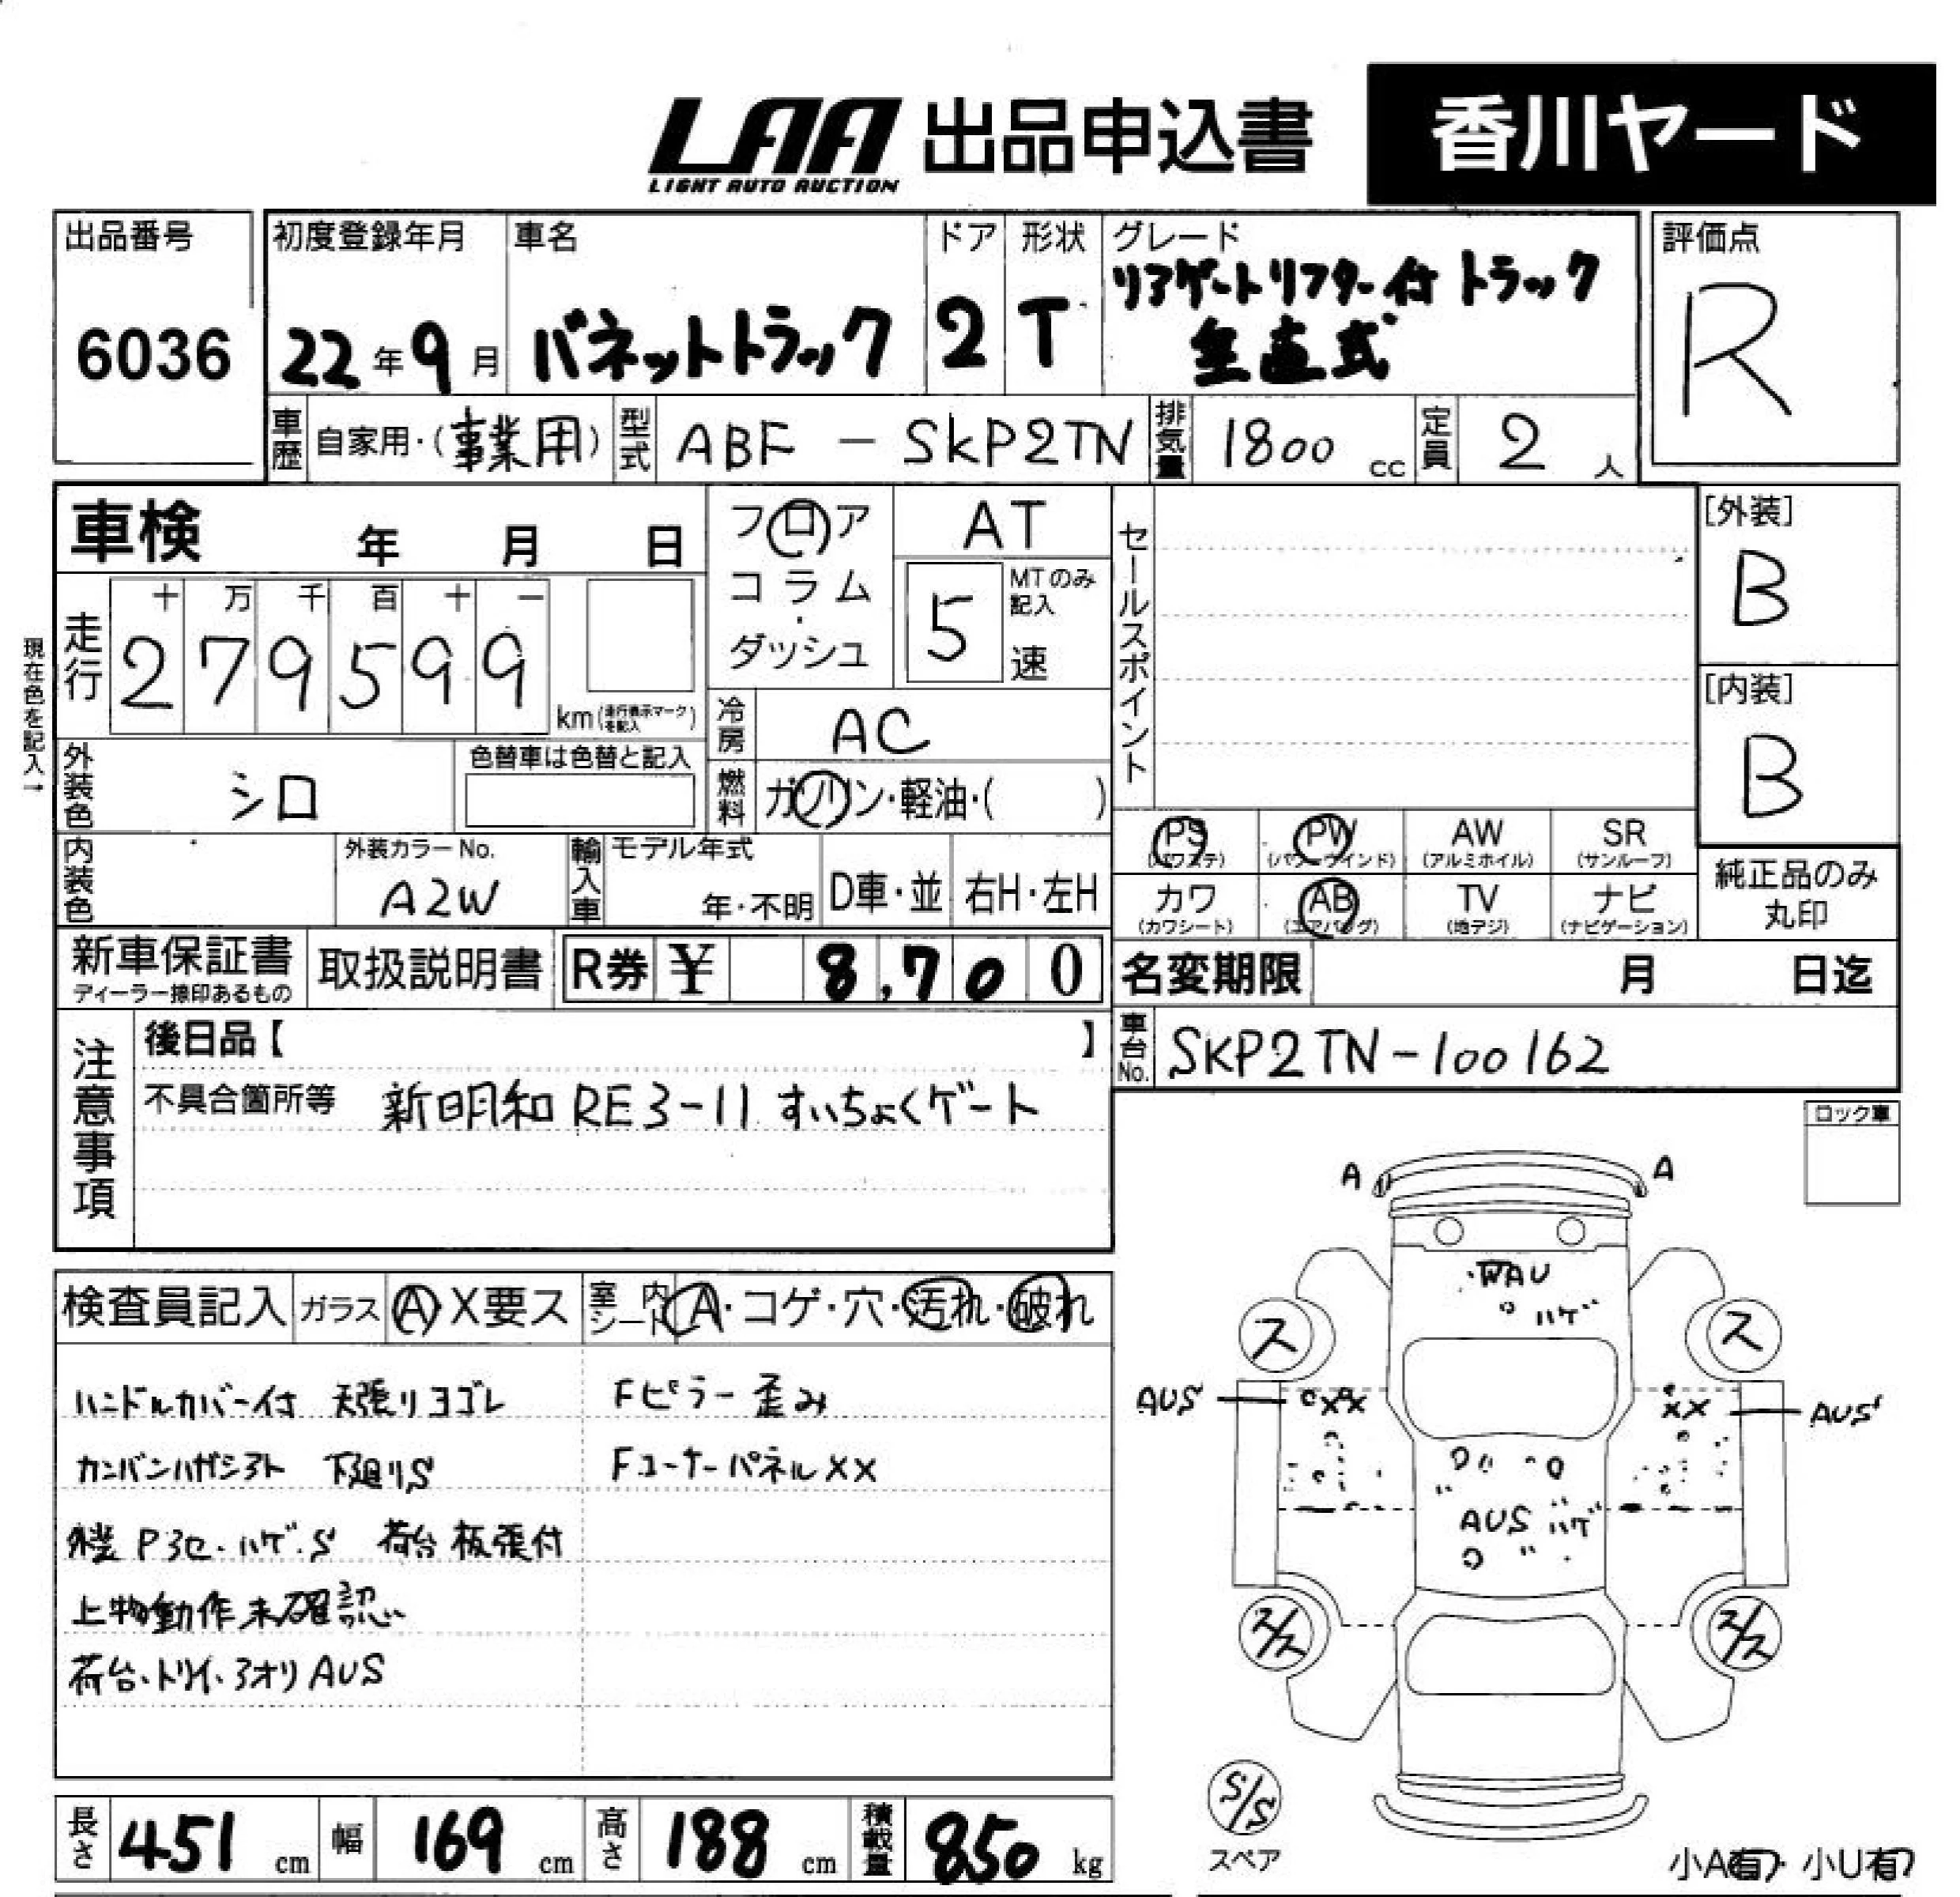 LAA 出品申込書 香川ヤード
LIGHT AUTO AUCTION
出品番号 初度登録年月 車名 ドア 形状 グレード 評価点
リアゲートリフター付 トラック
6036 22年9月 バネットトラック 2 T 垂直式 R
車歴 自家用・(事業用) 型式 ABF - SKP2TN 排気量 1800 cc 定員 2 人
車検 年 月 日 フロア AT セールスポイント [外装]
B
十 万 千 百 十 一 コラム・ダッシュ 5 MTのみ記入 速
走行 279599 km (走行表示マークを記入) [内装]
現在色を記入→
冷房 AC B
外装色 シロ 色替車は色替と記入 燃料 ガソリン・軽油・( )
PS (パワステ) PW (パワーウインド) AW (アルミホイル) SR (サンルーフ)
内装色 外装カラーNo. A2W 輸入車 モデル年式 年・不明 D車・並 右H・左H
カワ (カワシート) AB (エアバッグ) TV (地デジ) ナビ (ナビゲーション) 純正品のみ丸印
新車保証書 取扱説明書 R券 ¥ 8,700 名変期限 月 日迄
ディーラー捺印あるもの
注意事項 後日品【 】 車台No. SKP2TN-100162
不具合箇所等 新明和 RE3-11 すいちょくゲート
ロック車
A A
検査員記入 ガラス A・X要ス 室内シート A・コゲ・穴・汚れ・破れ
ハンドルカバー付 天張リヨゴレ Fピラー歪み
カンバンハガシアト 下廻リS Fコーナーパネル××
外装 P3セ・ハゲ・S 荷台板張付
上物動作未確認
荷台・トリイ・アオリ AUS
AU
ハゲ
ス ス
AUS ×× ×× AUS
AUS ハゲ
ス/ス ス/ス
S/S
スペア
長さ 451 cm 幅 169 cm 高さ 188 cm 積載量 850 kg
小A有・小U有